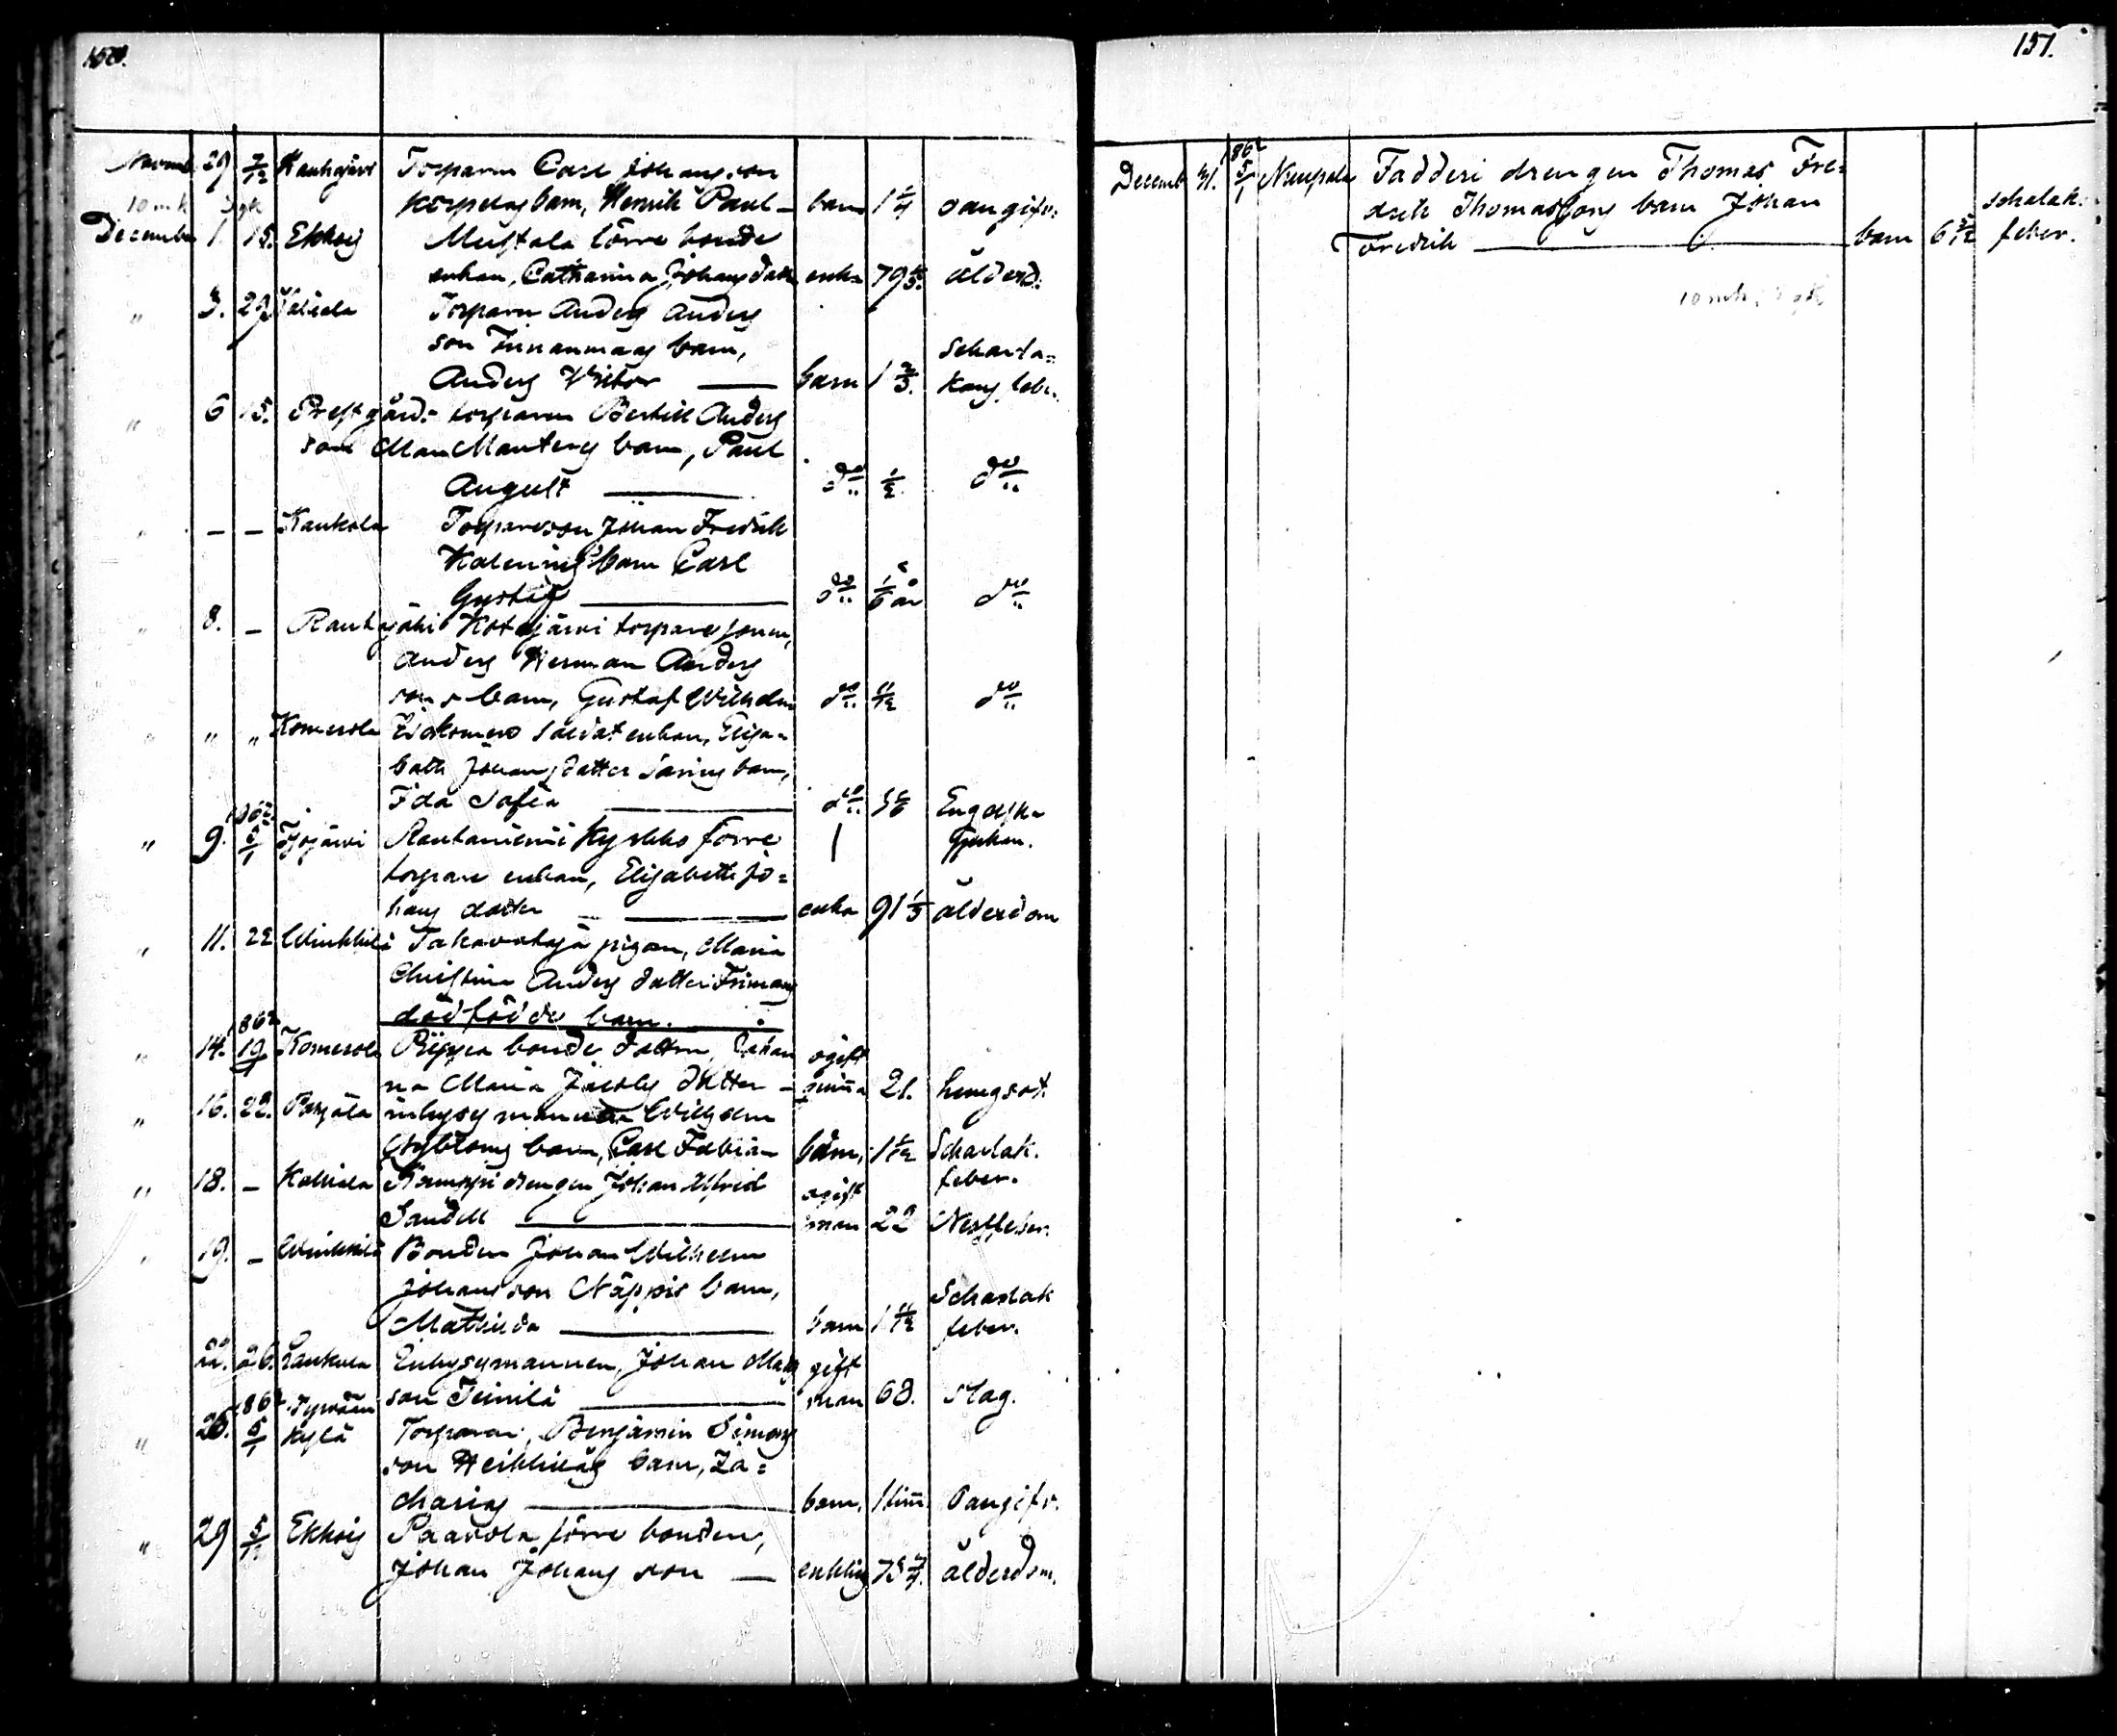 150.
Novemb. 29 7/12 Torparen Carl Johansson
Korpelas barn, Henrik Paul - barn 1 1/4 oangifv.
10 mk
December 1. 15. Ekkois Mustola förre bonde
enkan, Catharina Johansdatter enka 79 ålderd.
" 3. 29 Torparn Anders Anders
son Finnanmaas barn,
Anders Victor — barn 1 2/3. Scharla=
kans feb.
" 6 15. Prestgård. torparen Bertill Anders
son Manters barn, Paul
August — do 1/2 do
" — — Kaukola Torparesson Johan Fredrik
barn Carl
Gustaf — do 1/6 år do
" 8. — Rautajoki torparesonen,
Anders Herman Anders
sons barn, Gustaf Wilhelm do 11/12 do
" " " Komerola soldat enkan, Elisa=
beth Johansdotter barn,
Ida Sofia — do Engelska
sjukan.
" 9. 1862 6/1 Rautaniemi förre
torpare enkan, Elisabeth Jo=
hans dotter — enka 91 1/3 ålderdom
" 11. 22 pigan, Maria
Christina Anders datter Frimans
dödfödde barn.
" 14. 1862 19/1 Komerola bonde dattren, Johan
na Maria Jacobs datter - ogift qvinna 21. lungsot.
" 16. 22. inhyses mannen Wilhelm
barn, Carl Fabian barn, Scharlak.
feber.
" 18. — drengen Johan Alfrid
Sandell — ogift man 22 Nerffeber.
" 19. — Bonden Johan Wilhelm
Johansson Näppis barn,
Mathilda — barn 1 11/12 Scharlak
feber.
22. 26. Inhysesmannen, Johan Mats
son — gift man 68. slag.
" 1862 6/1 kylä Torparen, Benjamin Simons
son Heikkiläs barn, Za=
charias — barn. 1 tim. Oangifv.
" 29 5/1 Ekkois Paavola förre bonden,
Johan Johans son — enkling ålderdom.
151.
Decemb 31. 1862 5/1 Fadderi drengen Thomas Fre=
drik Thomassons barn Johan
Fredrik — barn schalak.
feber.
10 mk